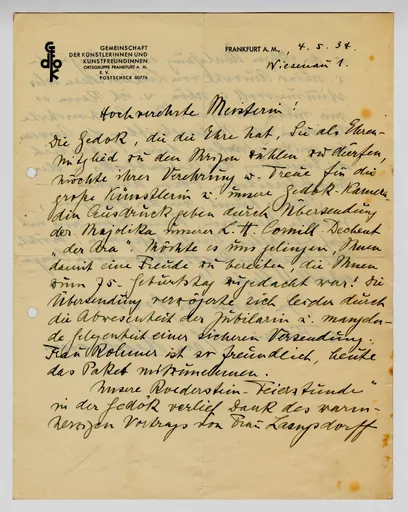 GEDOK
GEMEINSCHAFT
DER KÜNSTLERINNEN UND
KUNSTFREUNDINNEN
ORTSGRUPPE FRANKFURT A. M.
E. V.
POSTSCHECK 60776
FRANKFURT A. M., 4. 5. 34.
Wiesenau 1.
Hochverehrte Meisterin!
Die Gedok, die die Ehre hat, Sie als Ehren-
mitglied zu den Ihrigen zählen zu dürfen,
möchte ihrer Verehrung u. Treue für die
große Künstlerin u. unsere Gedok-Kamera-
din Ausdruck geben durch Übersendung
der Majolika unserer L. H. Cornill-Dechent
„der Ara". Möchte es uns gelingen, Ihnen
damit eine Freude zu bereiten, die Ihnen
zum 75. Geburtstag zugedacht war! Die
Übersendung verzögerte sich leider durch
die Abwesenheit der Jubilarin u. mangeln-
de Gelegenheit einer sicheren Versendung.
Frau Rohmer ist so freundlich, heute
das Paket mitzunehmen.
Unsere Roederstein-Feierstunde"
in der Gedok verlief Dank des warm-
herzigen Vortrags von Frau